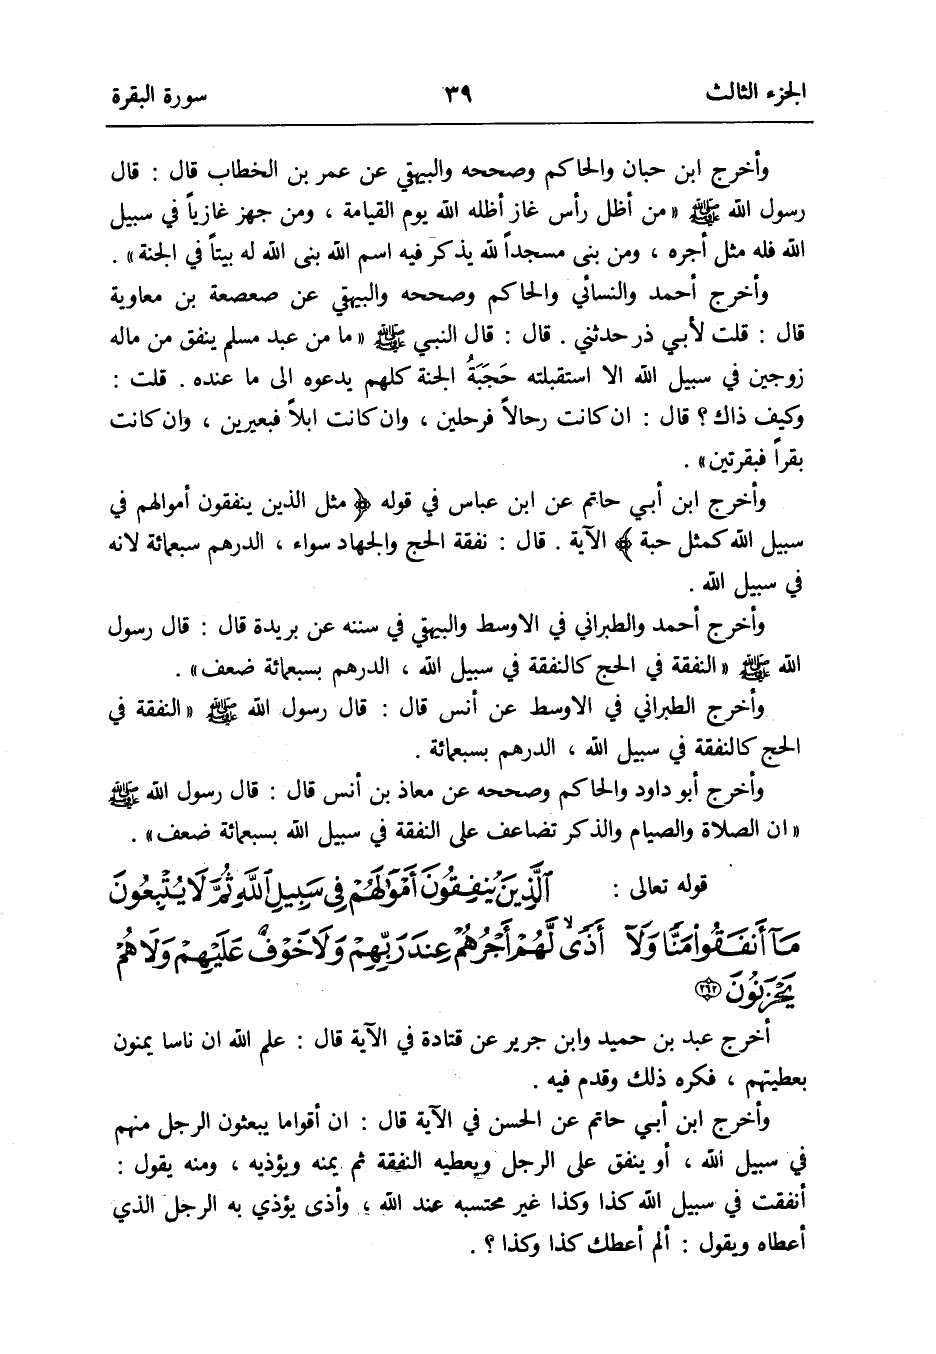 الجزء الثالث ٣٩ سورة البقرة
وأخرج ابن حبان والحاكم وصححه والبيهقي عن عمر بن الخطاب قال : قال
رسول الله ﷺ «من أظل رأس غاز أظله الله يوم القيامة ، ومن جهز غازياً في سبيل
الله فله مثل أجره ، ومن بنى مسجداً لله يذكر فيه اسم الله بنى الله له بيتاً في الجنة» .
وأخرج أحمد والنسائي والحاكم وصححه والبيهقي عن صعصعة بن معاوية
قال : قلت لأبي ذر حدثني . قال : قال النبي ﷺ «ما من عبد مسلم ينفق من ماله
زوجين في سبيل الله الا استقبلته حَجَبَةُ الجنة كلهم يدعوه الى ما عنده . قلت :
وكيف ذاك ؟ قال : ان كانت رحالاً فرحلين ، وان كانت ابلاً فبعيرين ، وان كانت
بقراً فبقرتين» .
وأخرج ابن أبي حاتم عن ابن عباس في قوله ﴿ مثل الذين ينفقون أموالهم في
سبيل الله كمثل حبة ﴾ الآية . قال : نفقة الحج والجهاد سواء ، الدرهم سبعمائة لانه
في سبيل الله .
وأخرج أحمد والطبراني في الاوسط والبيهقي في سننه عن بريدة قال : قال رسول
الله ﷺ «النفقة في الحج كالنفقة في سبيل الله ، الدرهم بسبعمائة ضعف» .
وأخرج الطبراني في الاوسط عن أنس قال : قال رسول الله ﷺ «النفقة في
الحج كالنفقة في سبيل الله ، الدرهم بسبعمائة .
وأخرج أبو داود والحاكم وصححه عن معاذ بن أنس قال : قال رسول الله ﷺ
«ان الصلاة والصيام والذكر تضاعف على النفقة في سبيل الله بسبعمائة ضعف» .
قوله تعالى : ٱلَّذِينَ يُنفِقُونَ أَمْوَٰلَهُمْ فِى سَبِيلِ ٱللَّهِ ثُمَّ لَا يُتْبِعُونَ
مَآ أَنفَقُوا۟ مَنًّا وَلَآ أَذًى ۙ لَّهُمْ أَجْرُهُمْ عِندَ رَبِّهِمْ وَلَا خَوْفٌ عَلَيْهِمْ وَلَا هُمْ
يَحْزَنُونَ ۝٢٦٢
أخرج عبد بن حميد وابن جرير عن قتادة في الآية قال : علم الله ان ناسا يمنون
بعطيتهم ، فكره ذلك وقدم فيه .
وأخرج ابن أبي حاتم عن الحسن في الآية قال : ان أقواما يبعثون الرجل منهم
في سبيل الله ، أو ينفق على الرجل ويعطيه النفقة ثم يمنه ويؤذيه ، ومنه يقول :
أنفقت في سبيل الله كذا وكذا غير محتسبه عند الله ، وأذى يؤذي به الرجل الذي
أعطاه ويقول : ألم أعطك كذا وكذا ؟ .